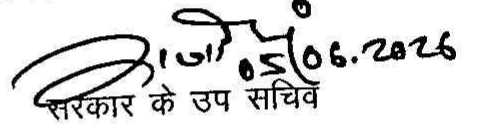 05/06.2026
सरकार के उप सचिव